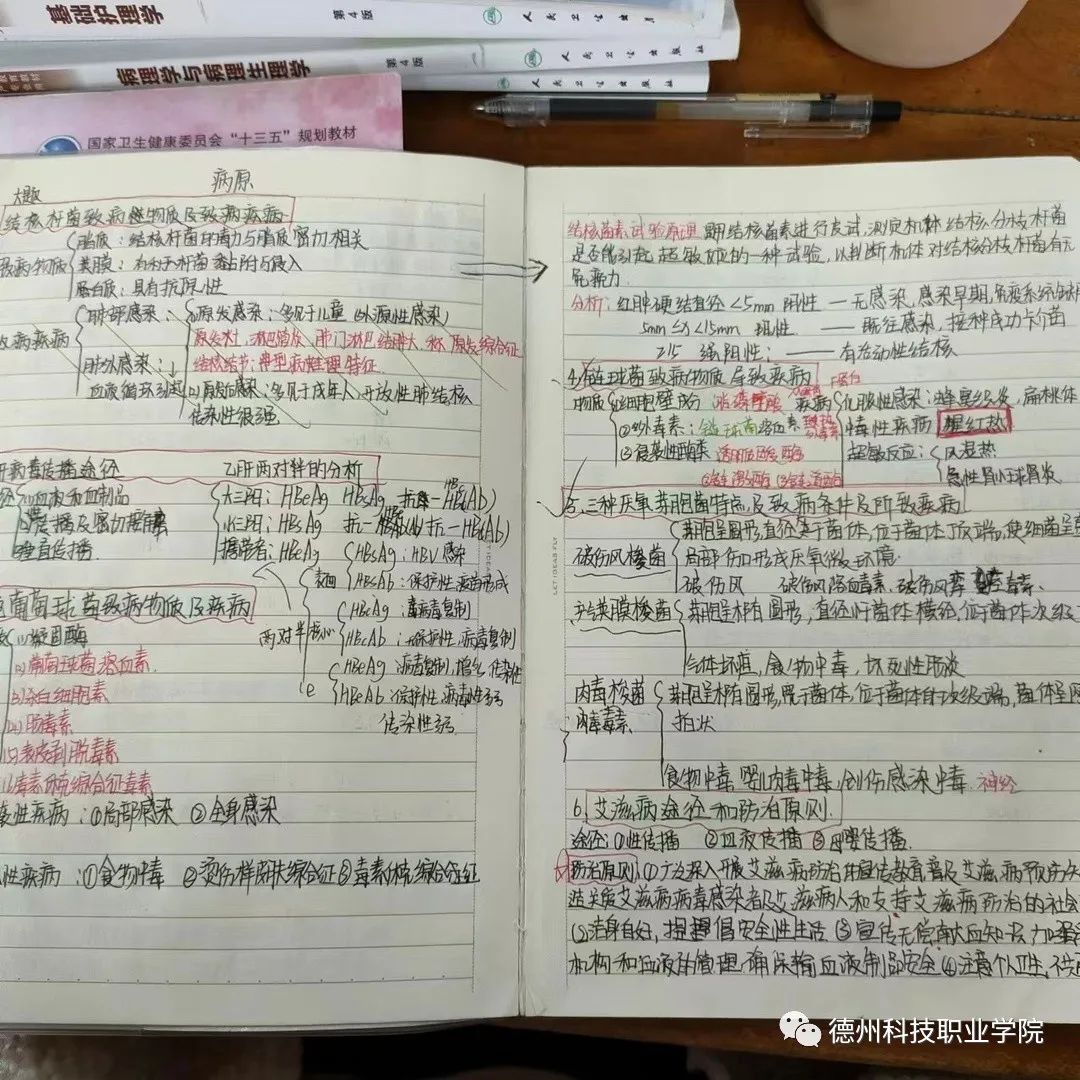 基础护理学
第4版
人民卫生出版社
病理学与病理生理学
第4版
人民卫生出版社
人民卫生出版社
国家卫生健康委员会“十三五”规划教材
病原
大题
结核杆菌致病物质及致病疾病
脂质：结核杆菌毒力与脂质密切相关
病物质 荚膜：有利于杆菌黏附与侵入
蛋白质：具有抗原性
病疾病
肺部感染：原发感染：多见于儿童（外源性感染）
原发灶、淋巴管炎、肺门淋巴结肿大，称原发综合征
结核结节：典型病理特征.
肺外感染：
血液循环引起
原发后感染：多见于成年人，开放性肺结核
传染性很强.
肝病毒传播途径
乙肝两对半的分析
血液和血制品
大三阳：HBeAg HBsAg 抗-HBc(HBcAb)
垂直传播.
携带者：HBeAg
HBsAg：HBV感染
表面
HBsAb：保护性，疫苗形成
HBeAg：毒病毒复制
两对半核心
HBcAb：无保护性，病毒复制
HBeAg：病毒复制，增多，传染性
e
HBeAb：保护性，病毒性弱
传染性弱.
葡萄球菌致病物质及疾病
(1)凝固酶
(2)葡萄球菌溶血素.
(3)杀白细胞素
(4)肠毒素
(5)表皮剥脱毒素
毒素休克综合征毒素
性疾病：①局部感染 ②全身感染
性疾病：①食物中毒 ②烫伤样皮肤综合征③毒素休克综合征
结核菌素试验原理 即用结核菌素进行皮试，测定机体结核分枝杆菌
是否能引起超敏反应的一种试验，以判断机体对结核分枝杆菌有无
免疫力
分析：红肿硬结直径<5mm 阴性 — 无感染，感染早期，免疫系统
5mm≤d<15mm 阳性 —— 既往感染，接种成功卡介苗
≥15 强阳性： —— 有活动性结核
4.链球菌致病物质 导致疾病
物质 ①细胞壁成分 疾病 化脓性感染：蜂窝组织炎，扁桃体
②外毒素：链球菌溶血素 毒性疾病 猩红热
③侵袭性酶类 透明质酸酶 超敏反应：风湿热
急性肾小球肾炎
5.三种厌氧芽胞菌特点，及致病条件及所致疾病
芽胞呈圆形，直径大于菌体，位于菌体顶端，使细菌呈
破伤风梭菌 局部伤口形成厌氧微环境.
破伤风 破伤风溶血毒素、破伤风痉挛毒素.
产气荚膜梭菌 芽胞呈椭圆形，直径小于菌体横径，位于菌体次级
气体坏疽，食物中毒，坏死性肠炎
肉毒梭菌 芽胞呈椭圆形，宽于菌体，位于菌体次级端，菌体呈网
肉毒毒素 拍状
食物中毒 婴儿肉毒中毒，创伤感染中毒. 神经
6.艾滋病途径和防治原则.
途径：①性传播 ②血液传播 ③母婴传播.
防治原则.①广泛深入开展艾滋病防治的宣传教育，普及艾滋病预防知
关爱艾滋病病毒感染者及艾滋病人和支持艾滋病防治的社会
②洁身自好，提倡安全性生活 ③宣传无偿献血知识，加强
机构和血液的管理，确保输血液制品安全 ④注意个人卫生，不共
LET IDEAS FLY
德州科技职业学院